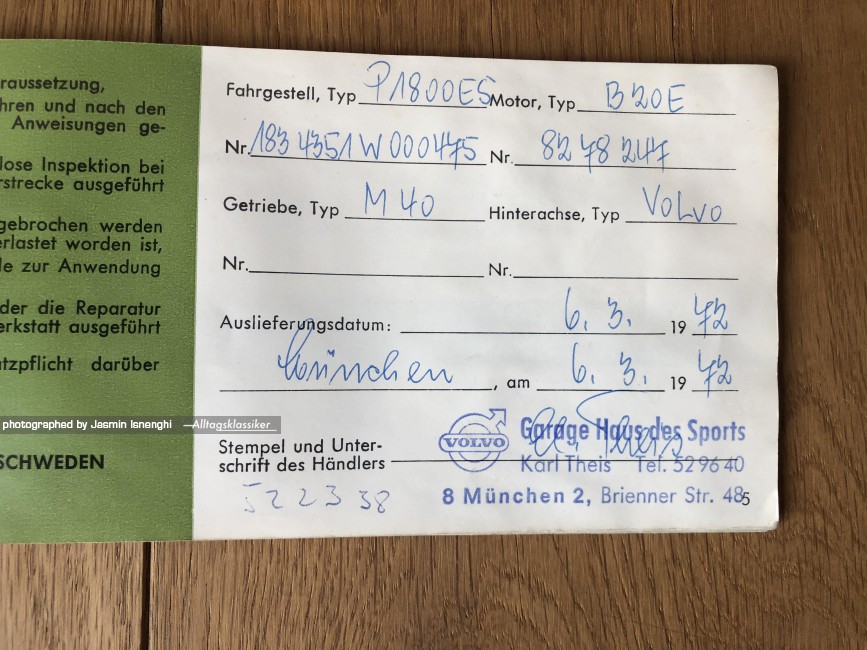 raussetzung,
hren und nach den
Anweisungen ge-
lose Inspektion bei
rstrecke ausgeführt
gebrochen werden
erlastet worden ist,
le zur Anwendung
der die Reparatur
erkstatt ausgeführt
tzpflicht darüber
SCHWEDEN
Fahrgestell, Typ P1800ES Motor, Typ B20E
Nr. 1834351W000475 Nr. 8278247
Getriebe, Typ M40 Hinterachse, Typ VOLVO
Nr. Nr.
Auslieferungsdatum: 6. 3. 1972
München, am 6. 3. 1972
Stempel und Unter-
schrift des Händlers
VOLVO
Garage Haus des Sports
Karl Theis Tel. 52 96 40
8 München 2, Brienner Str. 48
522338
5
photographed by Jasmin Isnenghi —Alltagsklassiker—